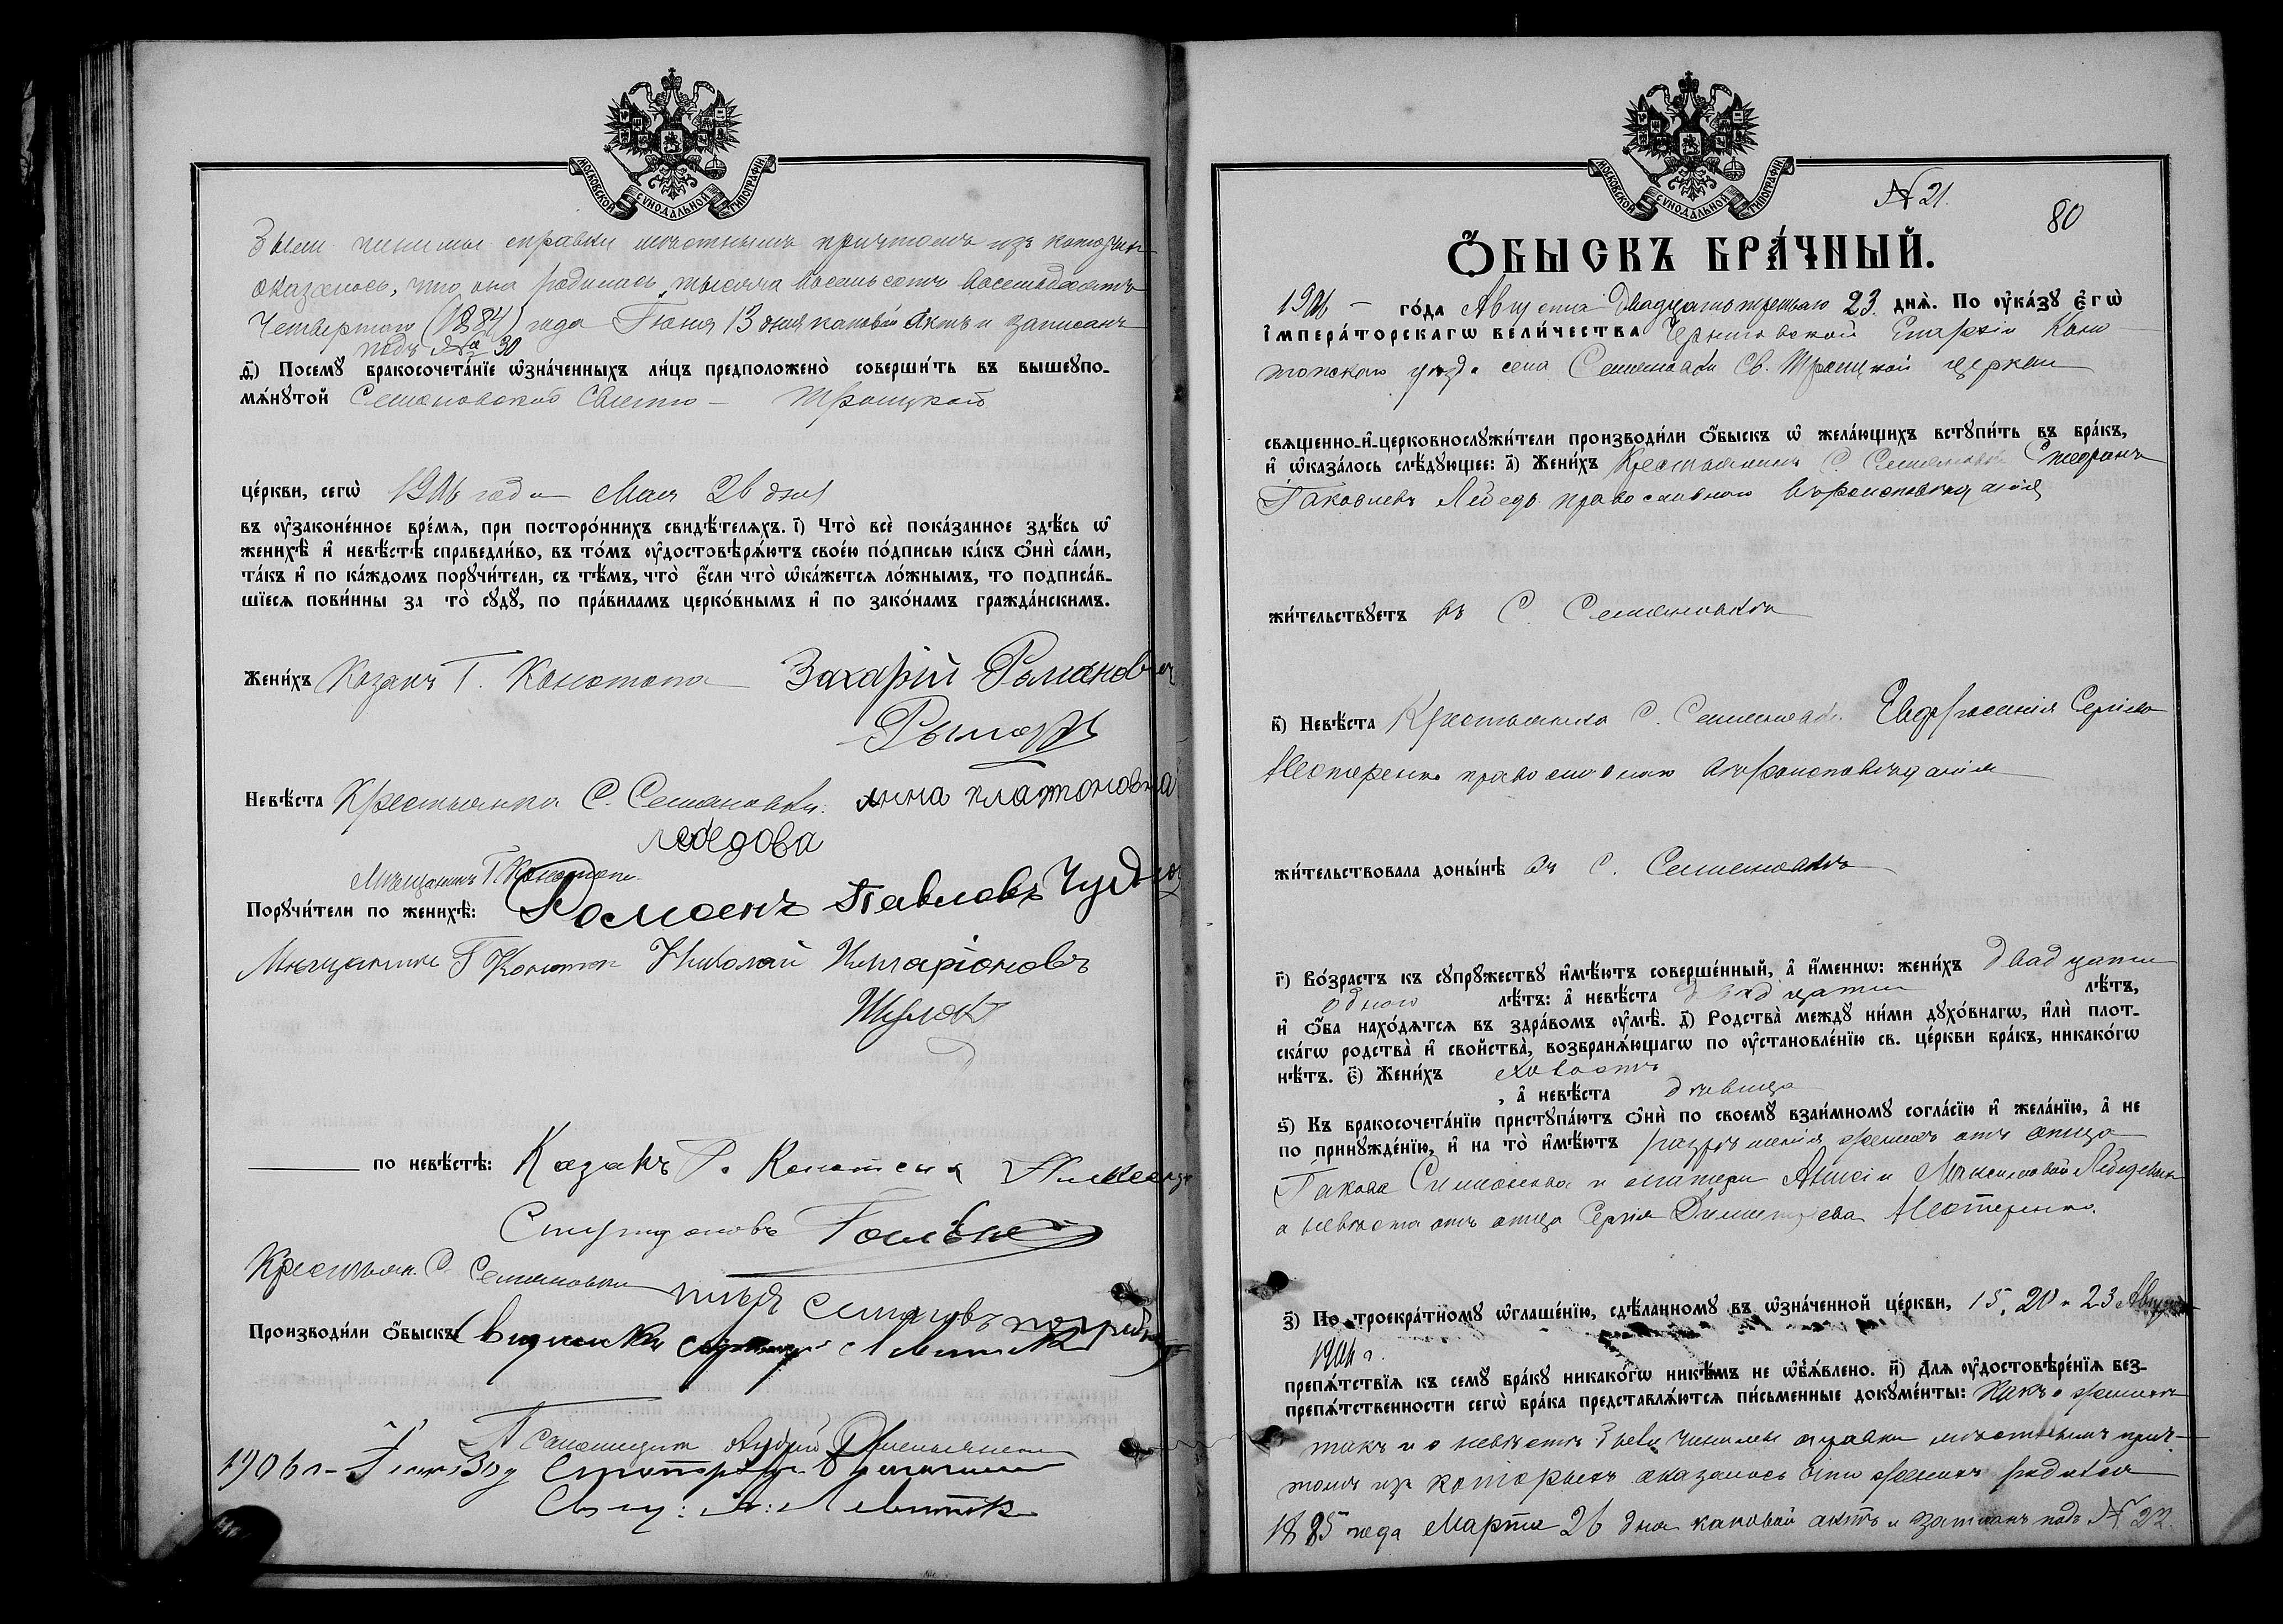 МОСКОВСКОЙ СѴНОДАЛЬНОЙ ТИПОГРАФІИ
были чинимы справки мѣстнымъ причтомъ изъ которыхъ
оказалось, что она родилась тысяча восемьсотъ восемьдесятъ
четвертого (1884) года Іюня 13 дня каковой актъ и записанъ
подъ № 30
д҃) Посемꙋ бракосочета́нїе ѡ҆зна́ченныхъ ли́цъ предположено̀ соверши́ть въ вышеꙋпо-
мѧ́нꙋтой Семяновской Свято - Троицкой
це́ркви, сегѡ̀ 1906 года Мая 26 дня
въ ᲂу҆законе́нное вре́мѧ, при посторо́ннихъ свидѣ́телѧхъ. і҃) Что̀ всѐ пока́занное здѣ́сь ѡ҆
женихѣ̀ и҆ невѣ́стѣ справедли́во, въ то́мъ ᲂу҆достовѣрѧ́ютъ свое́ю по́дписью ка́къ ѻ҆нѝ са́ми,
та́къ и҆ по ка́ждомъ порꙋчи́тели, съ тѣ́мъ, что̀ є҆́сли что̀ ѡ҆ка́жетсѧ ло́жнымъ, то подписа́в-
шїесѧ пови́нны за то̀ сꙋдꙋ̀, по пра́виламъ церко́внымъ и҆ по зако́намъ гражда́нскимъ.
Жени́хъ Козакъ Г. Конотопа Захарій Романовъ
Рымарь
Невѣ́ста Крестьянка С. Семяновки. Анна Платоновна
Лебедова
Мѣщанинъ Г. Конотопа
Порꙋчи́тели по женихѣ̀: Романъ Павловъ
Мѣщанинъ Г. Конотопа Николай Иларіоновъ
по невѣ́стѣ: Казакъ Г. Конотопа
Спиридоновъ
Крестьян. С. Семяновки
Производи́ли ѻ҆́быскъ: Священникъ Левитскій
Псаломщикъ Андрей
1906 г.
Свящ: Левитскій
МОСКОВСКОЙ СѴНОДАЛЬНОЙ ТИПОГРАФІИ
№ 21.
80
Ѻ҆БЫСКЪ БРА́ЧНЫЙ.
1906 – го́да Августа двадцать третьяго 23 днѧ̀. По ᲂу҆ка́зꙋ є҆гѡ̀
і҆мпера́торскагѡ вели́чества Черниговской Епархіи Коно-
топскаго уѣзда села Семяновки Св. Троицкой церкви
свѧщенно-и҆-церковнослꙋжи́тели производи́ли ѻ҆́быскъ ѡ҆ жела́ющихъ встꙋпи́ть въ бра́къ,
и҆ ѡ҆каза́лось слѣ́дꙋющее: а҃) Жени́хъ Крестьянинъ С. Семяновки
Іаковлевъ Лебедь православнаго вѣроисповѣданія
жи́тельствꙋетъ въ С. Семяновкѣ
в҃) Невѣ́ста Крестьянка С. Семяновки Евфросинія Сергіева
Нестеренко православнаго вѣроисповѣданія
жи́тельствовала доны́нѣ въ С. Семяновкѣ
г҃) Во́зрастъ къ сꙋпрꙋ́жествꙋ и҆мѣ́ютъ соверше́нный, а҆ и҆́меннѡ: жени́хъ двадцати
одного лѣ́тъ: а҆ невѣ́ста двадцати лѣ́тъ,
и҆ ѻ҆́ба нахо́дѧтсѧ въ здра́вомъ ᲂу҆мѣ̀. д҃) Родства̀ междꙋ̀ ни́ми дꙋхо́внагѡ, и҆лѝ плот-
ска́гѡ родства̀ и҆ сво́йства̀, возбранѧ́ющагѡ по ᲂу҆становле́нїю св. це́ркви бра́къ, никако́гѡ
нѣ́тъ. є҃) Жени́хъ холостъ
, а҆ невѣ́ста дѣвица
ѕ҃) Къ бракосочета́нїю пристꙋпа́ютъ ѻ҆нѝ по своемꙋ̀ взаи́мномꙋ согла́сїю и҆ жела́нїю, а҆ не
по принꙋжде́нїю, и҆ на то̀ и҆мѣ́ютъ разрѣшенія женихъ отъ отца
Іакова Симонова и матери Максимовой
а невѣста отъ отца Сергія Нестеренко.
з҃) По троекра́тномꙋ ѡ҆глаше́нїю, сдѣ́ланномꙋ въ ѡ҆зна́ченной це́ркви, 15, 20 и 23 Августа
1906 г.
препѧ́тствїѧ къ семꙋ̀ бра́кꙋ никако́гѡ никѣ́мъ не ѡ҆б̾ѧ́влено. и҃) Длѧ ᲂу҆достовѣре́нїѧ без-
препѧ́тственности сегѡ̀ бра́ка представлѧ́ютсѧ пи́сьменные докꙋме́нты: Какъ о женихѣ
такъ и о невѣстѣ были чинимы справки мѣстнымъ прич-
томъ изъ которыхъ оказалось что женихъ родился
1885 года Марта 26 дня каковой актъ и записанъ подъ № 22